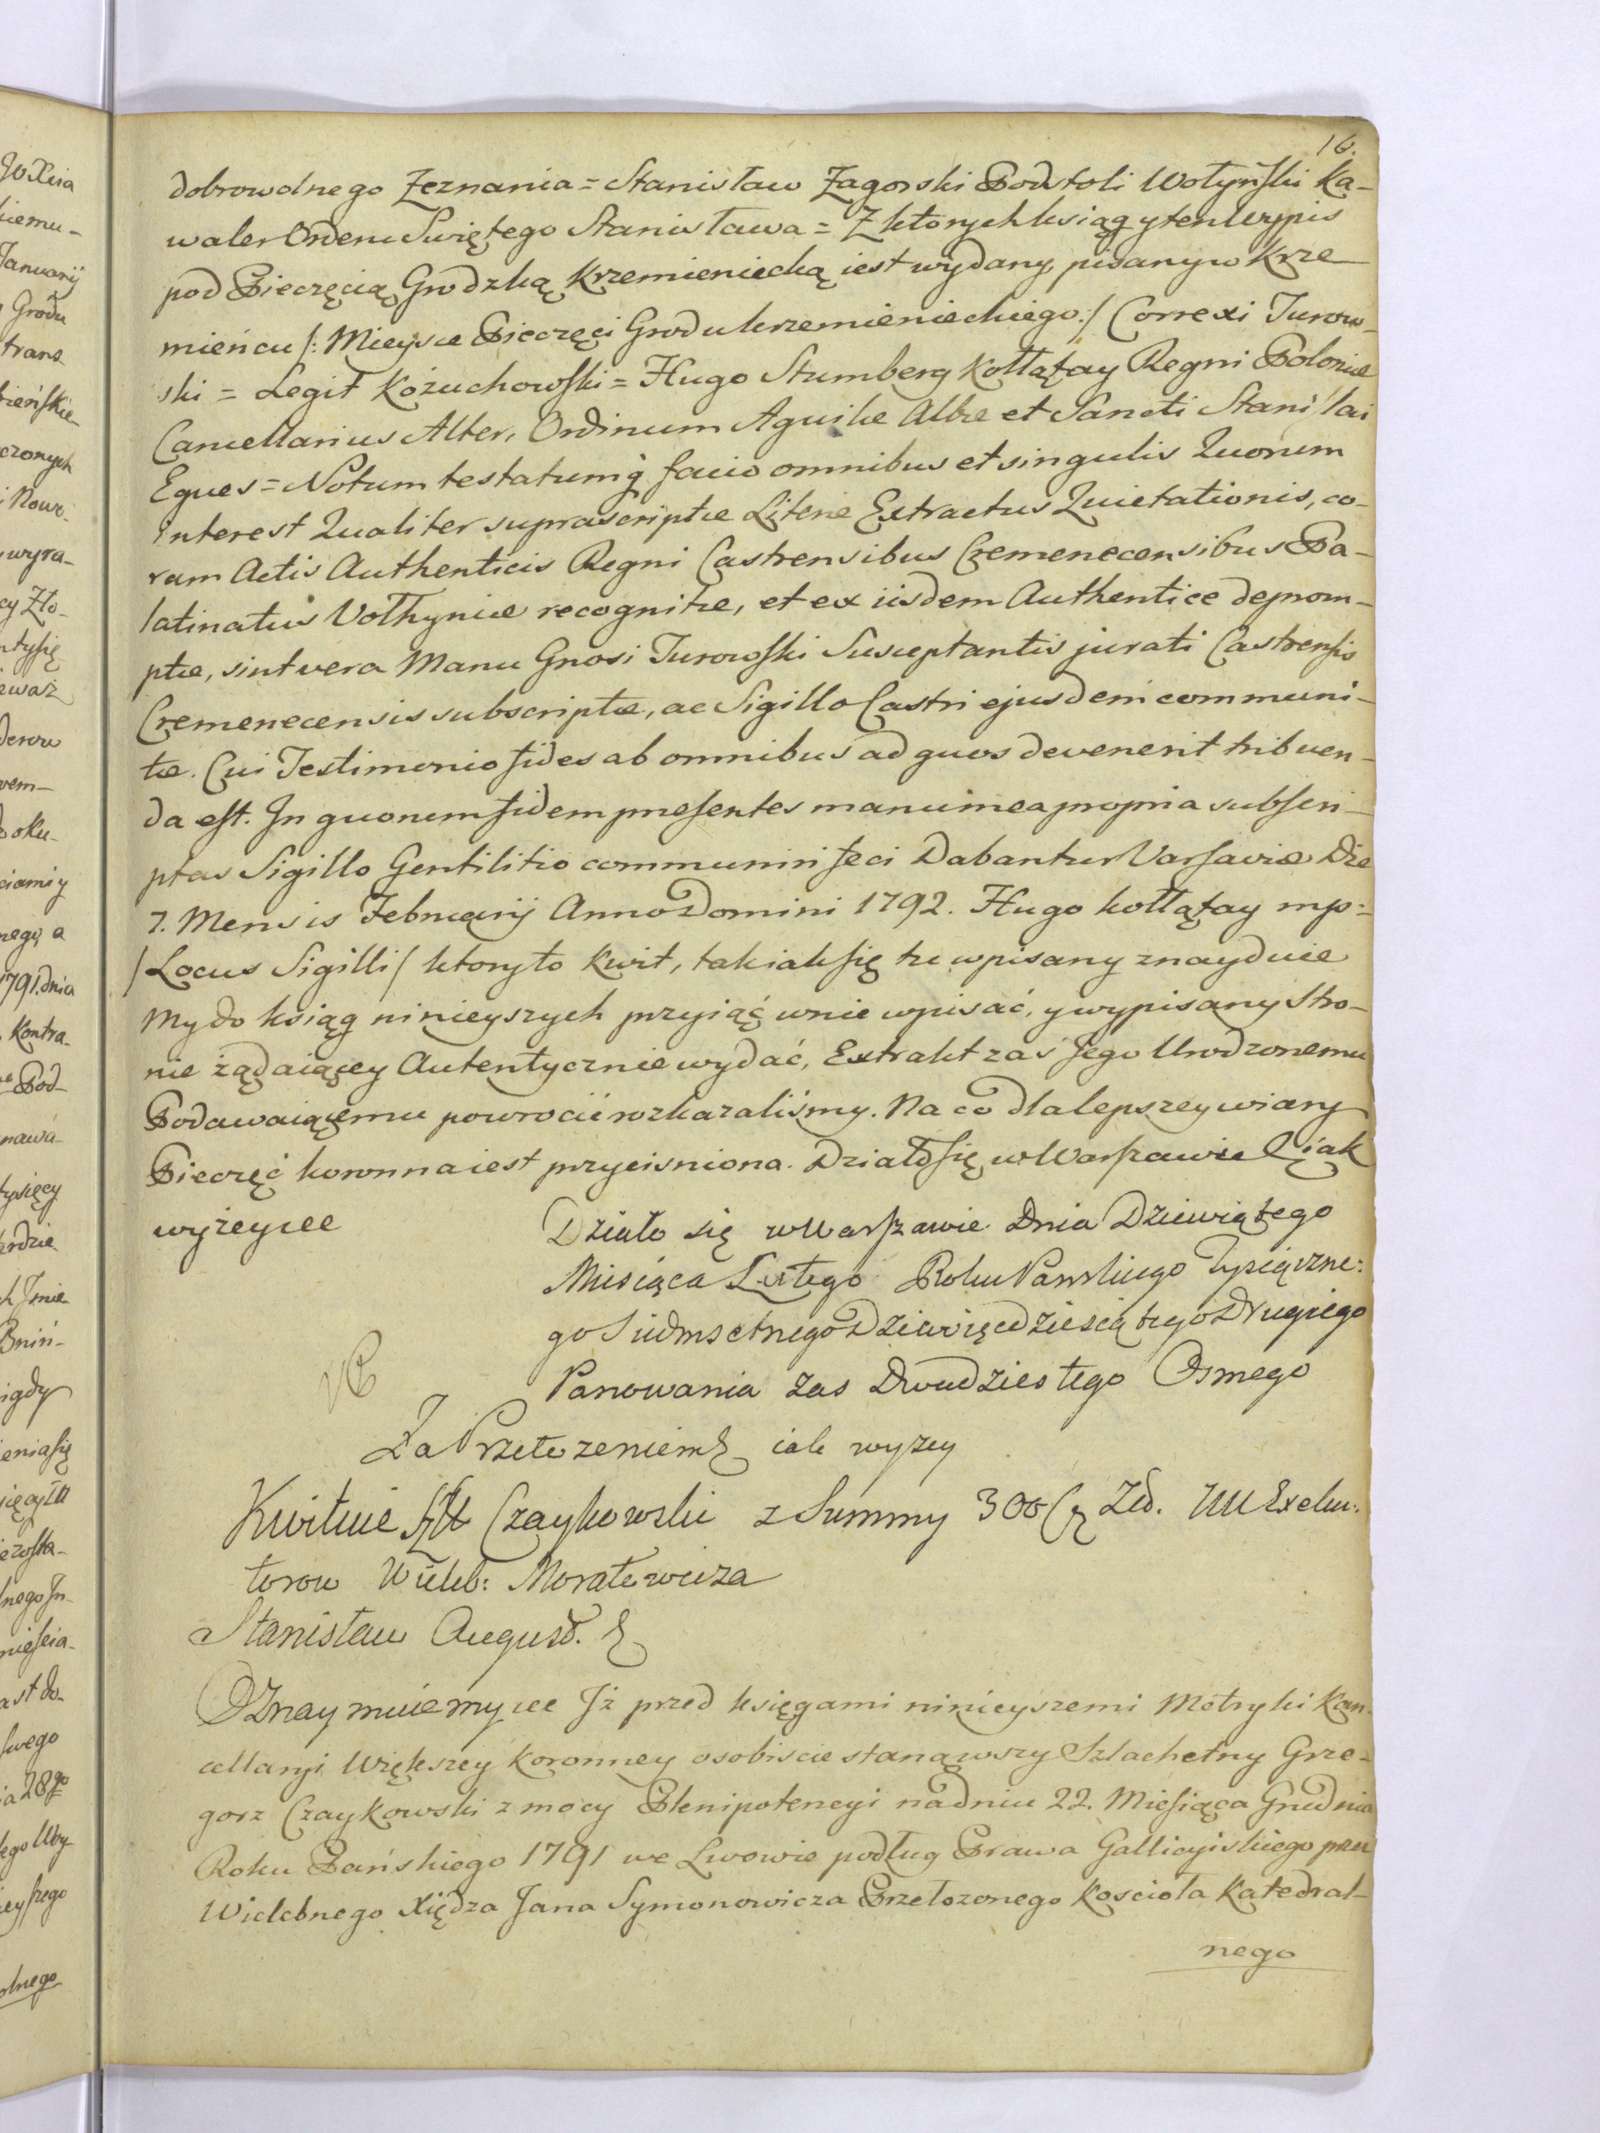 16.
dobrowolnego Zeznania = Stanisław Zagorski Podstoli Wołyński Ka-
waler Orderu Swiętego Stanisława = Z ktorych ksiąg y ten wypis
pod Pieczęcią Grodzką Krzemieniecką iest wydany, pisany w Krze
mieńcu /: Mieysce Pieczęci Grodu krzemienieckiego :/ Correxi Turow-
ski = Legit Kożuchowski = Hugo Stumberg Kołłątay Regni Poloniæ
Cancellarius Alter, Ordinum Aquilæ Albæ et Sancti Stanislai
Eques = Notum testatumq̃ facio omnibus et singulis Quorum
interest Qualiter suprascriptæ Literæ Extractus Quietationis, co-
ram Actis Authenticis Regni Castrensibus Cremenecensibus Pa-
latinatus Volhyniæ recognitæ, et ex iisdem Authentice deprom-
ptæ, sint vera Manu Gnosi Turowski Susceptantis jurati Castrensis
Cremenecensis subscriptæ, ac Sigillo Castri ejusdem communi-
tæ. Cui Testimonio fides ab omnibus ad quos devenerit tribuen-
da est. In quorum fidem præsentes manu mea propria subscri-
ptas Sigillo Gentilitio communiri feci Dabantur Varsaviæ Die
7. Mensis Februarij Anno Domini 1792. Hugo Kołłątay mp:=
/ Locus Sigilli / ktoryto kwit, tak iak się tu wpisany znayduie
My do ksiąg ninieyszych przyiąć, wnie wpisać, y wypisany Stro-
nie żądaiącey Autentycznie wydać, Extrakt zaś Jego Urodzonemu
Podawaiącemu powrocić rozkazaliśmy. Na co dla lepszey wiary
Pieczęć koronna iest przycisniona. Działo się w Warszawie iak
wyżey
Działo się w Warszawie Dnia Dziewiątego
Miesiąca Lutego Roku Pańskiego Tysiączne:
go Siedmsetnego Dziewięcdziesiątego Drugiego
Panowania zas Dwudziestego Osmego
Za Przełozeniem iak wyzey
Kwituie Czaykowski z Summy 300 Zło. Exeku:
torow Wieleb: Moratowicza
Stanisław August.
Oznaymuiemy Jż przed księgami ninieyszemi Metryki Kan-
cellaryi Większey Koronney osobiscie stanąwszy Szlachetny Grze-
gorz Czaykowski z mocy Plenipotencyi na dniu 22. Miesiąca Grudnia
Roku Pańskiego 1791 we Lwowie podług Prawa Gallicyiskiego przez
Wielebnego Xiędza Jana Symonowicza Przełozonego Koscioła Katedral-
nego